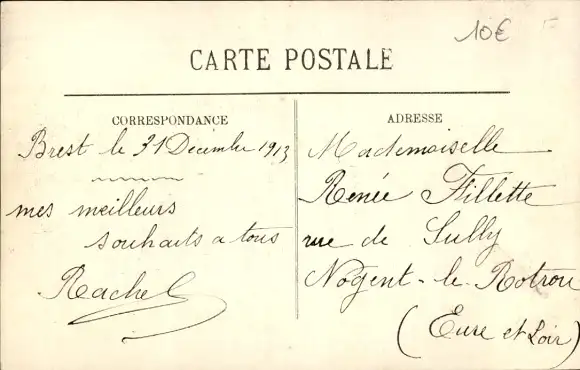 10€
CARTE POSTALE
CORRESPONDANCE
Brest le 31 Décembre 1913
mes meilleurs
souhaits a tous
Rachel
ADRESSE
Mademoiselle
Renée Fillette
rue de Sully
Nogent-le-Rotrou
(Eure et Loir)